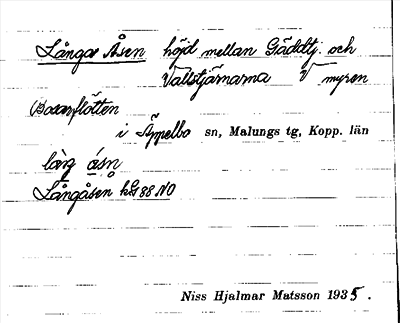 Långa Åsen höjd mellan Gäddtj. och
Vallstjärnarna V myren
flötten
i Äppelbo sn, Malungs tg, Kopp. län
lå̀ŋ ásn
Långåsen kG 88 NO
Niss Hjalmar Matsson 1935.